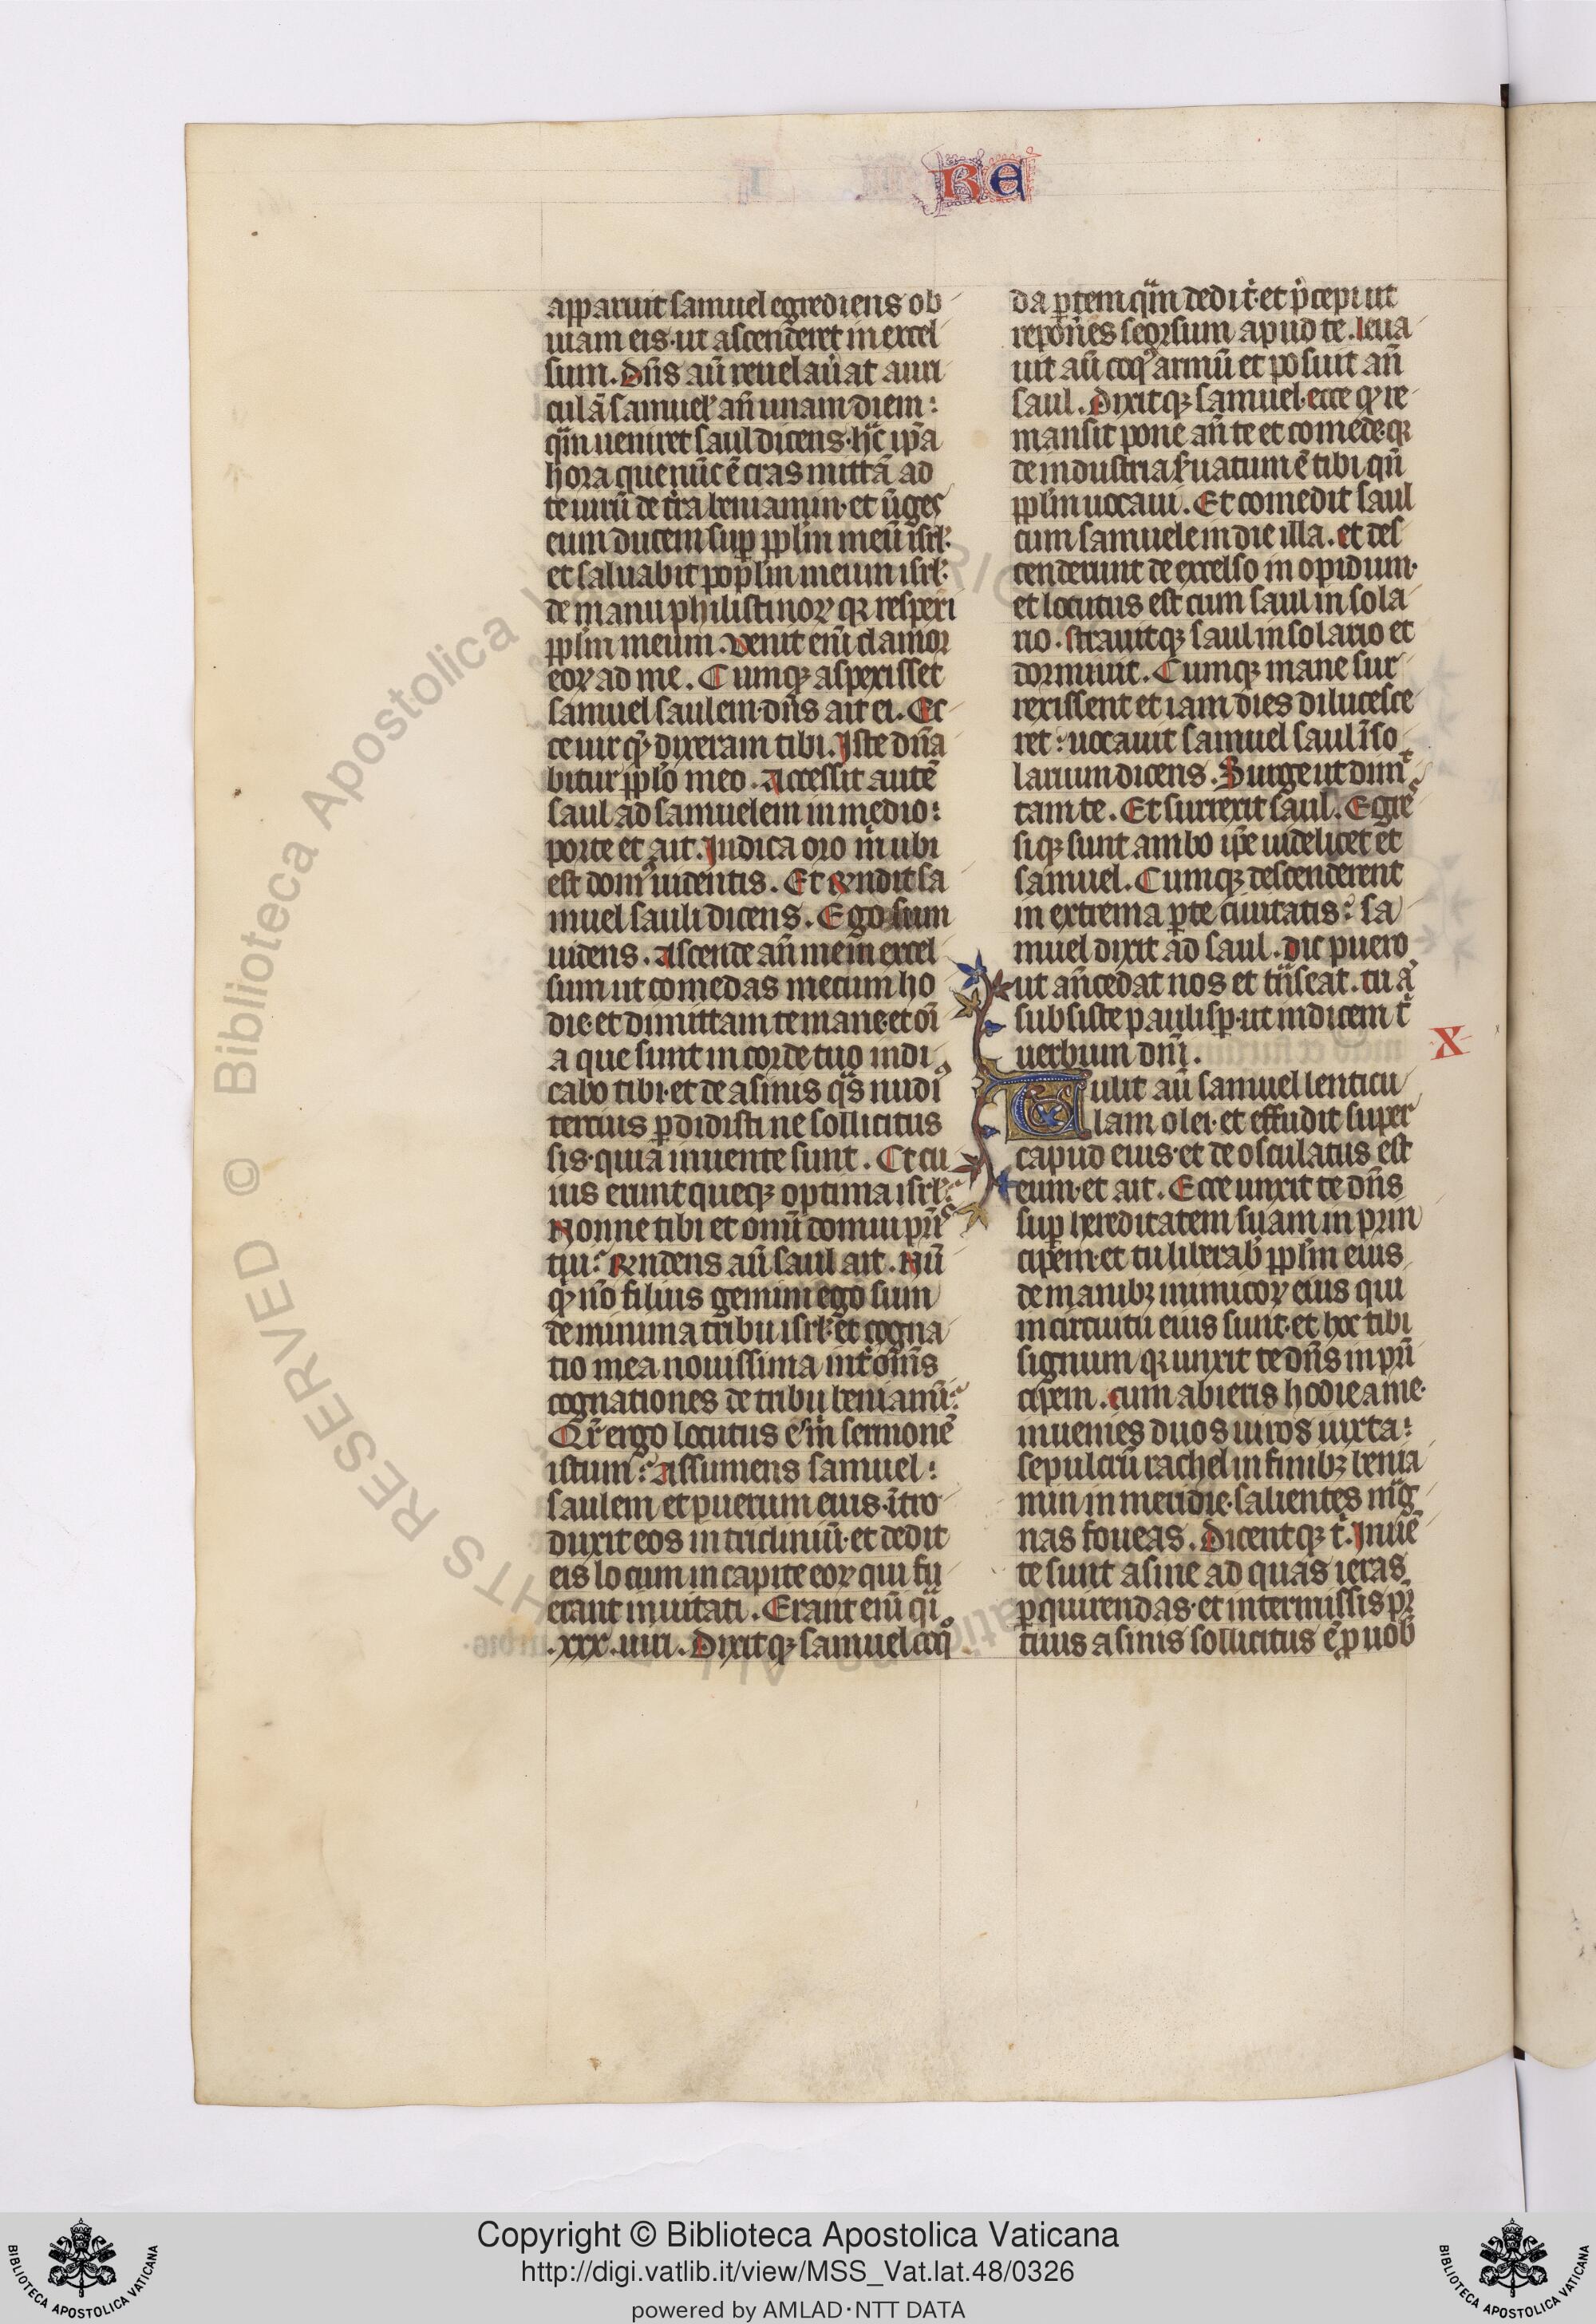 RE
apparuit samuel egrediens ob
uiam eis·ut ascenderet in excel
sum. Dn̄s aū reuelau̾at auri
culā samuel' an̄ unam diem:
qͣn ueniret saul dicens·hͣc ip̄a
hora que nūc ē cras mittā ad
te uirū de tr̄a beniamin·et ūges
eum ducem suꝑ pplm̄ meū isrl'·
et saluabit poplm̄ meum isrl'·
de manu philistinoꝝ qꝛ respexi
pplm̄ meum. Uenit eni̅ clamor
eoꝝ ad me. Cumqꝫ aspexisset
samuel saulem·dn̄s ait ei. Ec
ce uir qͤꝫ dixeram tibi. Iste dn̄a
bitur pplo̅ meo. Accessit autē
saul ad samuelem in medio:
porte et ait. Indica oro m̉ ubi
est domꝰ uidentis. Et rn̄dit sa
muel sauli dicens. Ego sum
uidens. Ascende an̄ me in excel
sum ut comedas mecum ho
die·et dimittam te mane·et oi̅
a que sunt in corde tuo indi
cabo tibi·et de asinis qͣs nudiꝰ
tercius ꝑdidisti ne sollicitus
sis·quia inuente sunt. Et cu
ius erunt queqꝫ optima isrl'?
Nonne tibi et omi̅ domui pr̄is
tui? Rn̄dens aū saul ait. Nū
qͥꝫ nō filius gemini ego sum
de minima tribu isrl'·et cogna
tio mea nouissima int̉ om̄s
cognationes de tribu beniami̅?
Qr̄ ergo locutus es m̉ sermonē
istum? Assumens samuel:
saulem et puerum eius·ītro
duxit eos in tricliniū·et dedit
eis locum in capite eoꝝ qui fu
erant inuitati. Erant eni̅ qͣi
.xxx.uiri. Dixitqꝫ samuel coqͦ
da ꝑtem qͣm dedi t̉·et p̄cepi ut
repōnes seorsum apud te. Leua
uit aū coqꝰ armū et posuit an̄
saul. Dixitqꝫ samuel·ecce qͥ re
mansit pone an̄ te et comede·qꝛ
de industria s̉uatum ē tibi qn̄
pplm̄ uocaui. Et comedit saul
cum samuele in die illa. et des
cenderunt de excelso in opidum·
et locutus est cum saul in sola
rio. strauitqꝫ saul in solario et
dormiuit. Cumqꝫ mane sur
rexissent et iam dies dilucesce
ret: uocauit samuel saul i̅ so
larium dicens. Surge ut dimit
tam te. Et surrexit saul. Egres
siqꝫ sunt ambo ip̄e uidelicet et
samuel. Cumqꝫ descenderent
in extrema ꝑte ciuitatis: sa
muel dixit ad saul. Dic puero
ut an̄cedat nos et tn̄seat. tu aͧ
subsiste paulisꝑ·ut indicem t̉
uerbum dni̅.
X
Tulit aū samuel lenticu
lam olei·et effudit super
capud eius·et deosculatus est
eum·et ait. Ecce unxit te dn̄s
suꝑ hereditatem suam in prin
cipem·et tu liberab' pplm̄ eius
de manibꝫ inimicoꝝ eius qui
in circuitu eius sunt·et hoc tibi
signum qꝛ unxit te dn̄s in pri̅
cipem. cum abieris hodie a me·
inuenies duos uiros iuxta:
sepulcrū rachel in finibꝫ benia
min in meridie·salientes mͣg
nas foueas. Dicentqꝫ t̉. Inuē
te sunt asine ad quas ieras
ꝑquirendas·et intermissis pr̄
tuus asinis sollicitus ē ꝓ uob
Copyright © Biblioteca Apostolica Vaticana
http://digi.vatlib.it/view/MSS_Vat.lat.48/0326
powered by AMLAD·NTT DATA
BIBLIOTECA APOSTOLICA VATICANA
BIBLIOTECA APOSTOLICA VATICANA